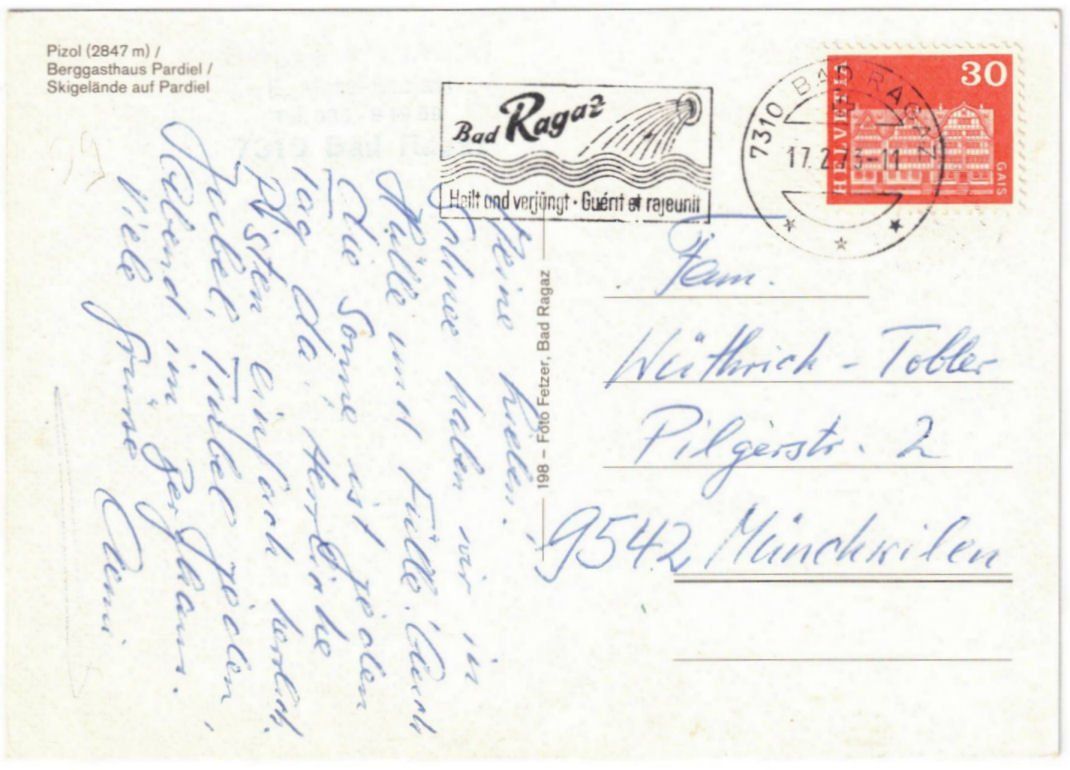 Pizol (2847 m) /
Berggasthaus Pardiel /
Skigelände auf Pardiel
Bad Ragaz
Heilt und verjüngt · Guérit et rajeunit
7310 BAD RAGAZ
17.2.73-11
HELVETIA
30
GAIS
Meine Lieben!
Schnee haben wir in
Hülle und Fülle. Auch
die Sonne ist jeden
Tag da. Herrliche
Pisten einfach herrlich.
Jubel, Trubel jeden
Abend im Berghaus.
Viele Grüsse
198 – Foto Fetzer, Bad Ragaz
Fam.
Wüthrich - Tobler
Pilgerstr. 2
9542 Münchwilen